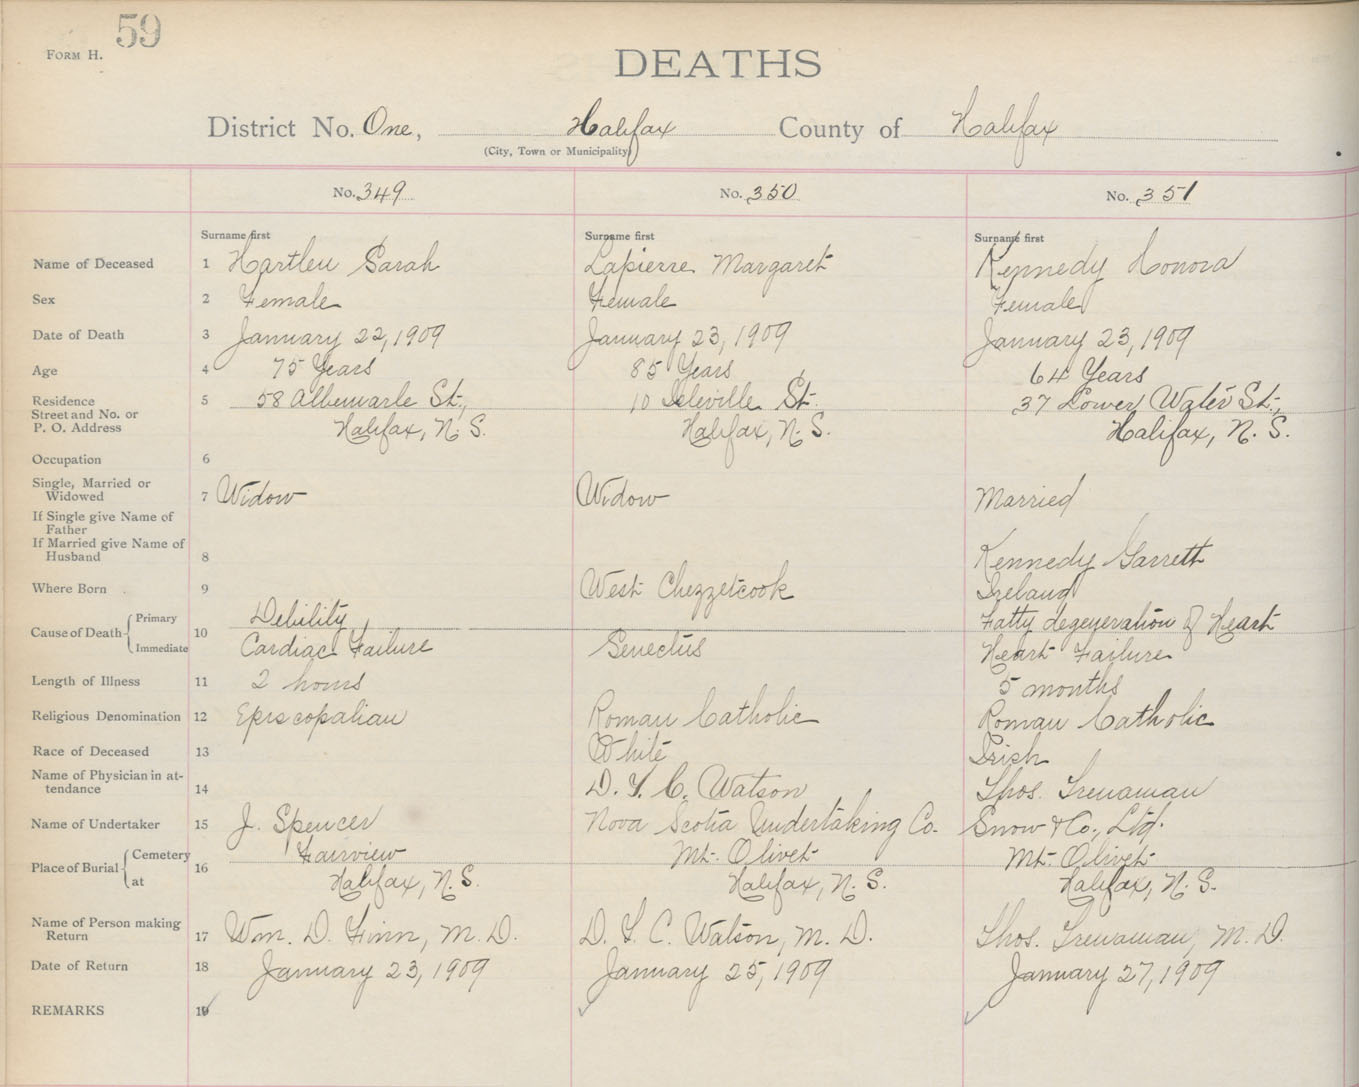 59
FORM H.
DEATHS
District No. One, Halifax County of Halifax
(City, Town or Municipality)
No. 349 No. 350 No. 351
Surname first Surname first Surname first
Name of Deceased 1 Hartlen Sarah Lapierre Margaret Kennedy Honora
Sex 2 Female Female Female
Date of Death 3 January 22, 1909 January 23, 1909 January 23, 1909
Age 4 75 Years 85 Years 64 Years
Residence 5 58 Albemarle St., 10 Isleville St. 37 Lower Water St.,
Street and No. or
P. O. Address Halifax, N. S. Halifax, N. S. Halifax, N. S.
Occupation 6
Single, Married or
Widowed 7 Widow Widow Married
If Single give Name of
Father
If Married give Name of
Husband 8 Kennedy Garrett
Where Born 9 West Chezzetcook Ireland
Cause of Death Primary 10 Debility Fatty degeneration of Heart
Immediate Cardiac Failure Senectus Heart Failure
Length of Illness 11 2 hours 5 months
Religious Denomination 12 Episcopalian Roman Catholic Roman Catholic
Race of Deceased 13 White Irish
Name of Physician in at-
tendance 14 D. C. Watson Thos. Trenaman
Name of Undertaker 15 J. Spencer Nova Scotia Undertaking Co. Snow & Co., Ltd.
Place of Burial Cemetery 16 Fairview Mt. Olivet Mt. Olivet
at Halifax, N. S. Halifax, N. S. Halifax, N. S.
Name of Person making
Return 17 Wm. D. Finn, M. D. D. C. Watson, M. D. Thos. Trenaman, M. D.
Date of Return 18 January 23, 1909 January 25, 1909 January 27, 1909
REMARKS 19